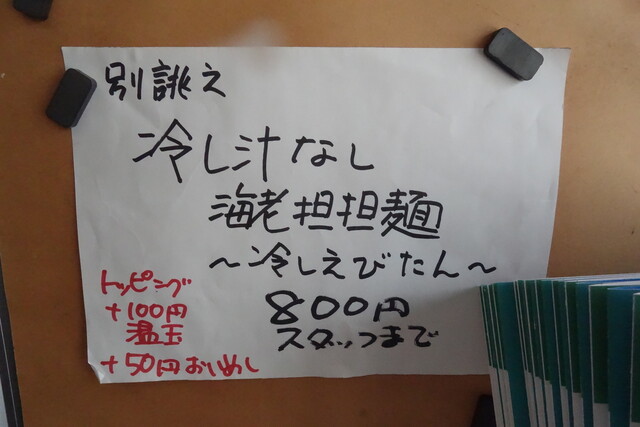 別誂え
冷し汁なし
海老担担麺
～冷しえびたん～
800円
スタッフまで
トッピング
+100円
温玉
+50円おいめし